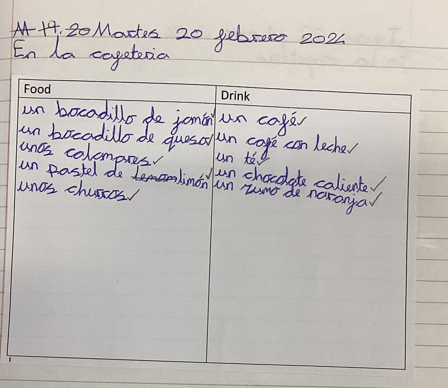 M-19.20 Martes 20 febrero 2024
En la cafeteria
Food
Drink
un bocadillo de jamón
un bocadillo de queso
unos calamares
un pastel de limón
unos churros
un café
un café con leche
un té
un chocolate caliente
un zumo de naranja